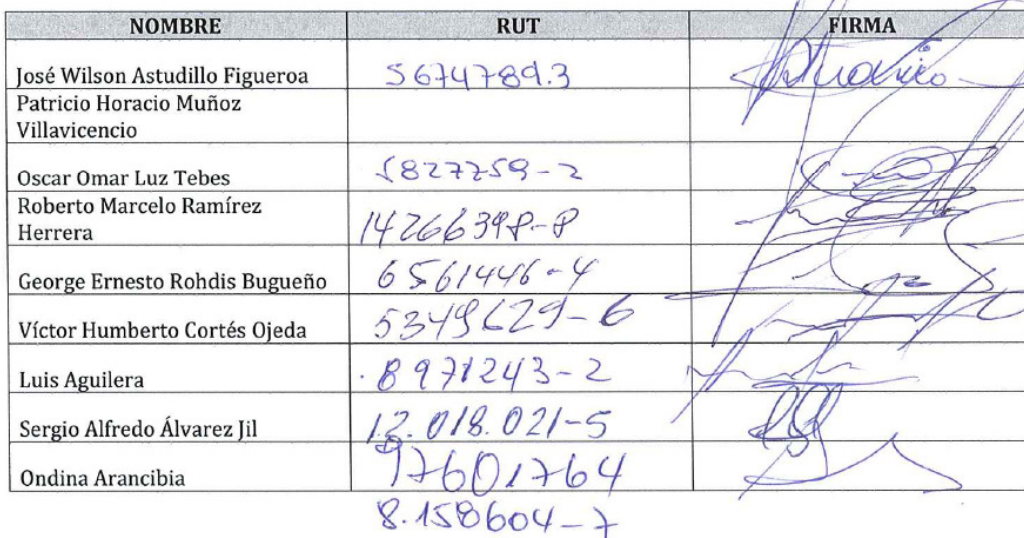 NOMBRE RUT FIRMA
José Wilson Astudillo Figueroa 5674789.3
Patricio Horacio Muñoz
Villavicencio
Oscar Omar Luz Tebes 5827759-2
Roberto Marcelo Ramírez
Herrera 14266398-8
George Ernesto Rohdis Bugueño 6561446-4
Víctor Humberto Cortés Ojeda 5349629-6
Luis Aguilera 8971243-2
Sergio Alfredo Álvarez Jil 12.018.021-5
Ondina Arancibia 97601764
8.158604-7